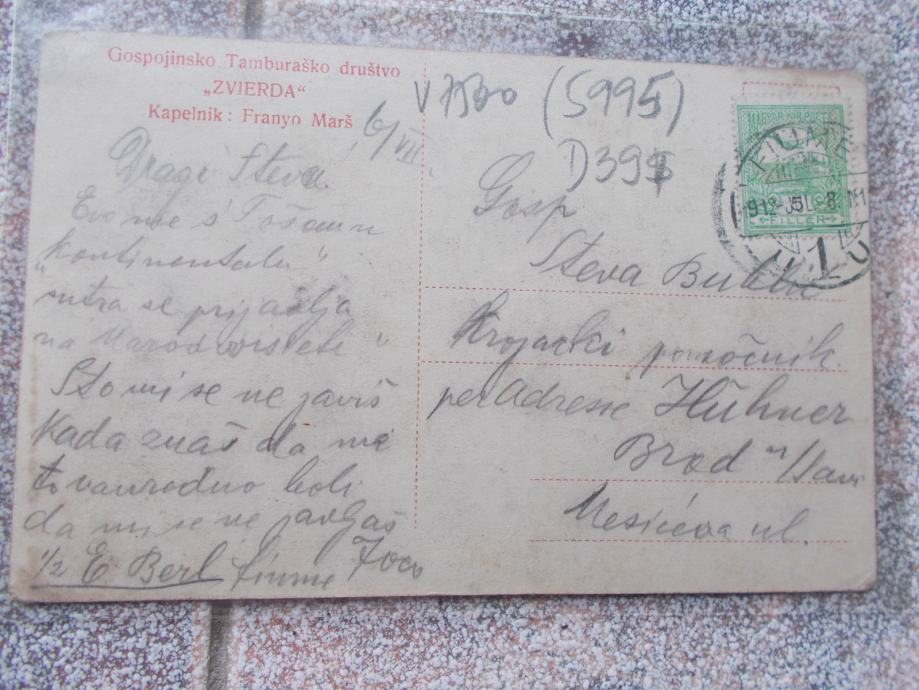 Gospojinsko Tamburaško društvo
„ZVIERDA“
Kapelnik: Franyo Marš
6/VII
Dragi Steva
Evo me s'
kontinentalu"
sutra se prijavlja
na
Sto mi se ne javiš
kada znaš da me
to vanredno boli
da mi se ne javljaš
1/2 E Berl fiume Joco
V 7500 (5995)
D395
MAGYAR KIR. POSTA
FILLÉR
FIUME
912 JUL 8
1
Gosp
Steva
Krojački pomoćnik
per Adresse Hühner
Brod n/Savi
Mesićeva ul.